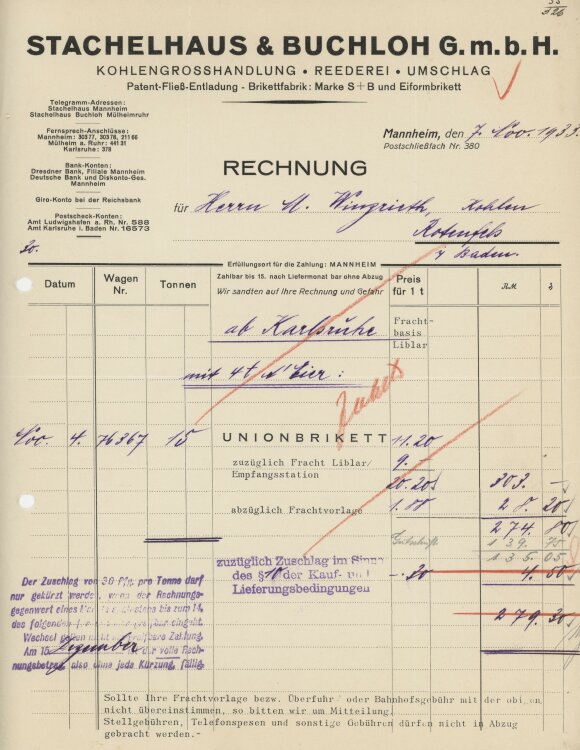 35
326
STACHELHAUS & BUCHLOH G.m.b.H.
KOHLENGROSSHANDLUNG • REEDEREI • UMSCHLAG
Patent-Fließ-Entladung - Brikettfabrik: Marke S+B und Eiformbrikett
Telegramm-Adressen:
Stachelhaus Mannheim
Stachelhaus Buchloh Mülheimruhr
Fernsprech-Anschlüsse:
Mannheim: 303 77, 303 78, 211 66
Mülheim a. Ruhr: 441 31
Karlsruhe: 378
Bank-Konten:
Dresdner Bank, Filiale Mannheim
Deutsche Bank und Diskonto-Ges.
Mannheim
Giro-Konto bei der Reichsbank
Postscheck-Konten:
Amt Ludwigshafen a. Rh. Nr. 588
Amt Karlsruhe i. Baden Nr. 16573
Mannheim, den 7. Nov. 1933.
Postschließfach Nr. 380
RECHNUNG
für Herrn M. Wingrieth, Kohlen
Rotenfels
Baden.
20.
Erfüllungsort für die Zahlung: MANNHEIM
Zahlbar bis 15. nach Liefermonat bar ohne Abzug
Wir sandten auf Ihre Rechnung und Gefahr
Datum
Wagen Nr.
Tonnen
Preis für 1 t
RM
ab Karlsruhe
Fracht-
basis
Liblar
mit 4t N'Eier:
Nov. 4. 76367 15 UNIONBRIKETT 11.20
zuzüglich Fracht Liblar/ 9.-
Empfangsstation 20.20 303.-
abzüglich Frachtvorlage 1.88 28.20
274 80
Gutschrift 139.75
135.05
zuzüglich Zuschlag im Sinne
des § 10 der Kauf- und -.30 4.50
Lieferungsbedingungen
279.30
Der Zuschlag von 30 Pfg. pro Tonne darf
nur gekürzt werden, wenn der Rechnungs-
gegenwert eines bis zum 14.
des folgenden eingeht.
Wechsel gelten nicht Zahlung.
Am 15. Dezember ist der volle Rech-
nungsbetrag, also ohne jede Kürzung, fällig.
Sollte Ihre Frachtvorlage bezw. Überfuhr- oder Bahnhofsgebühr mit der obigen
nicht übereinstimmen, so bitten wir um Mitteilung.
Stellgebühren, Telefonspesen und sonstige Gebühren dürfen nicht in Abzug
gebracht werden.-